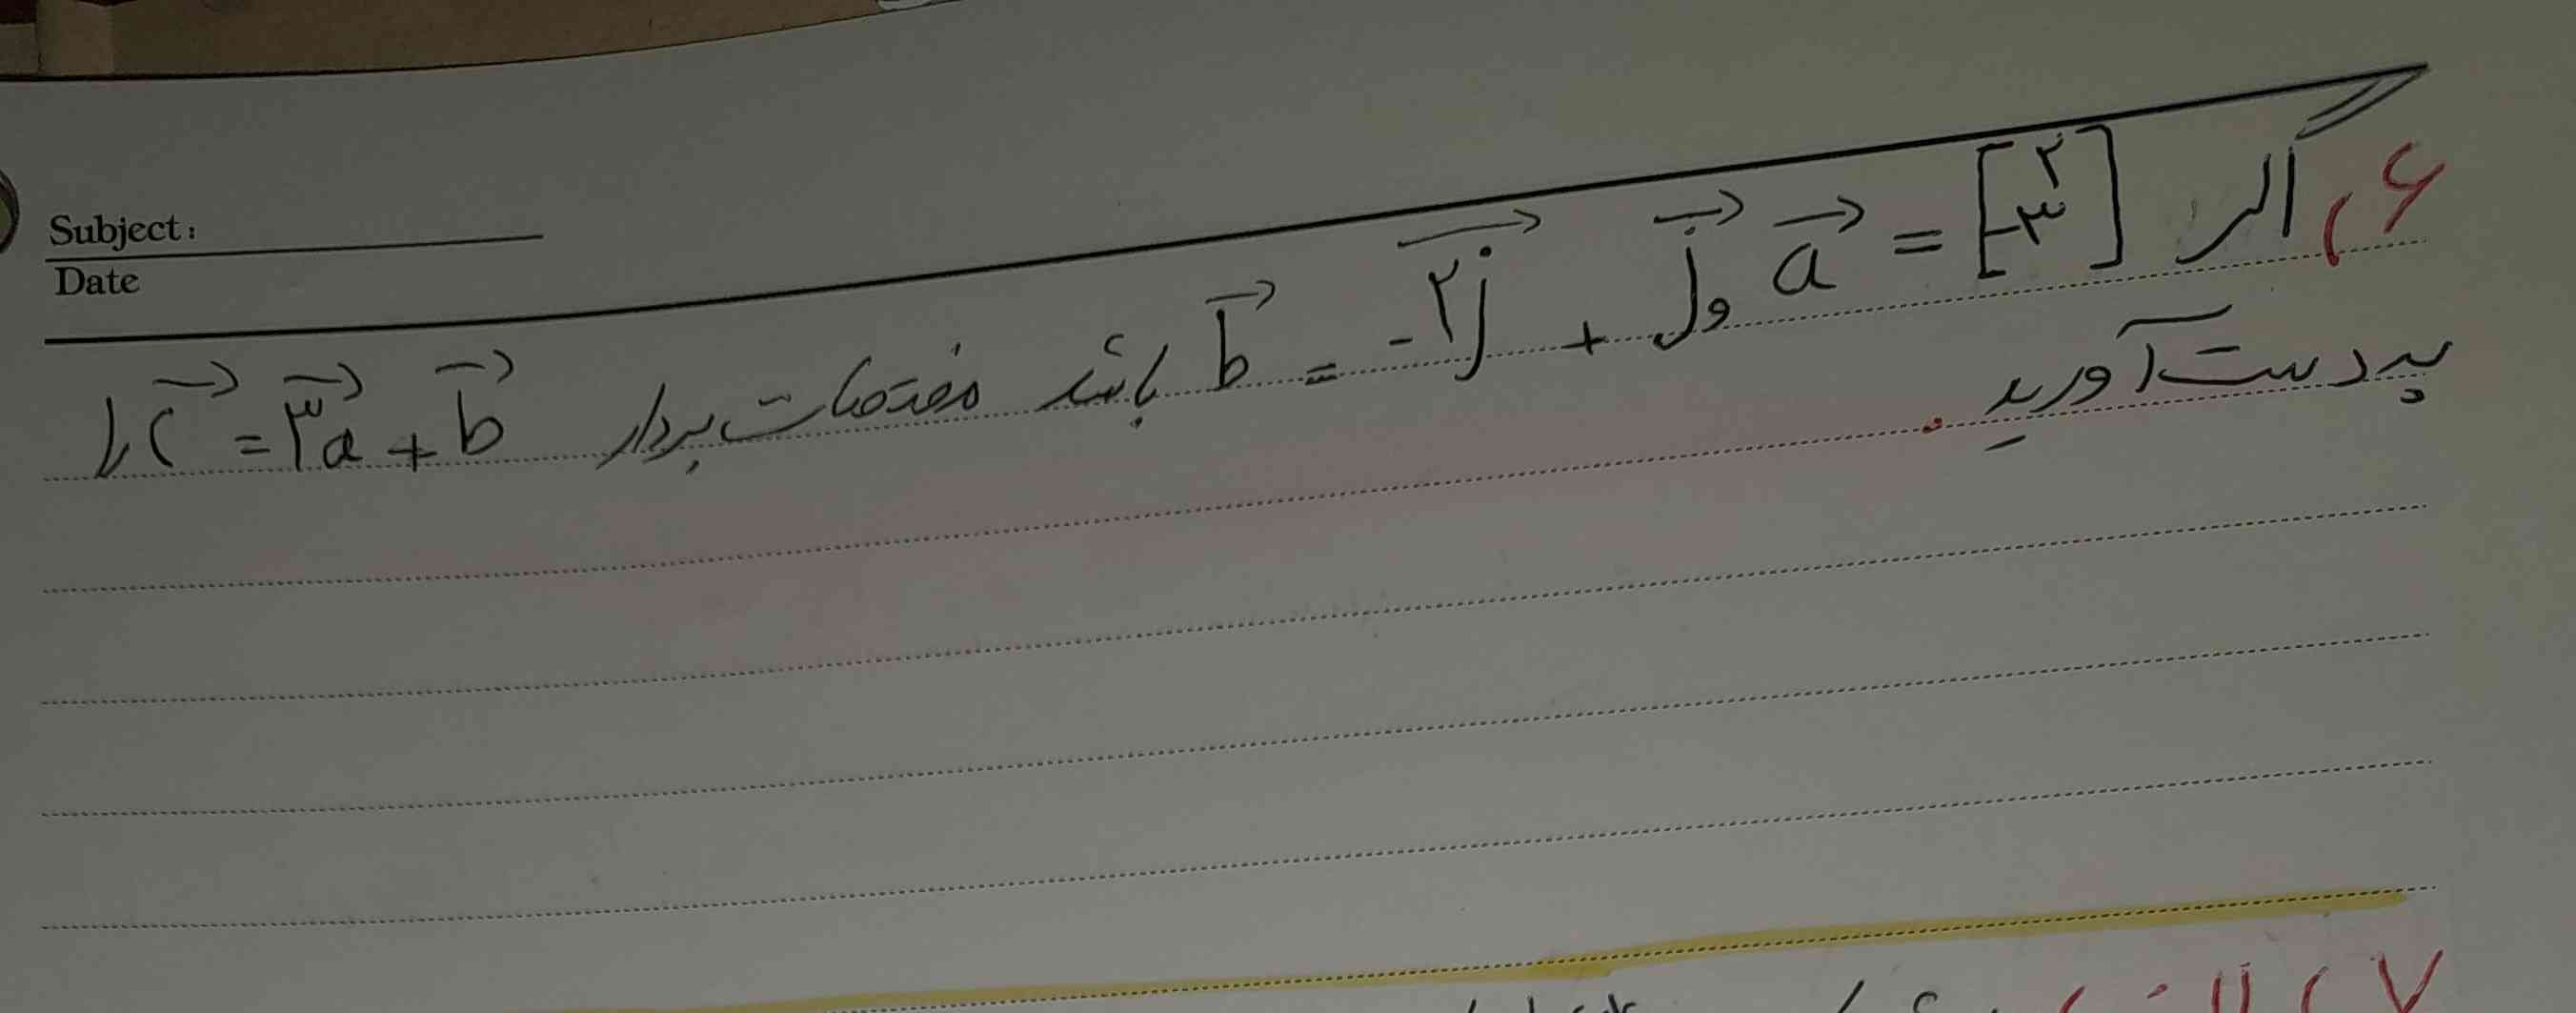 Subject:
Date
۶) اگر a = [۲ -۳] و b = -۲j + i
باشد مختصات بردار c = ۳a + b را
بدست آورید.